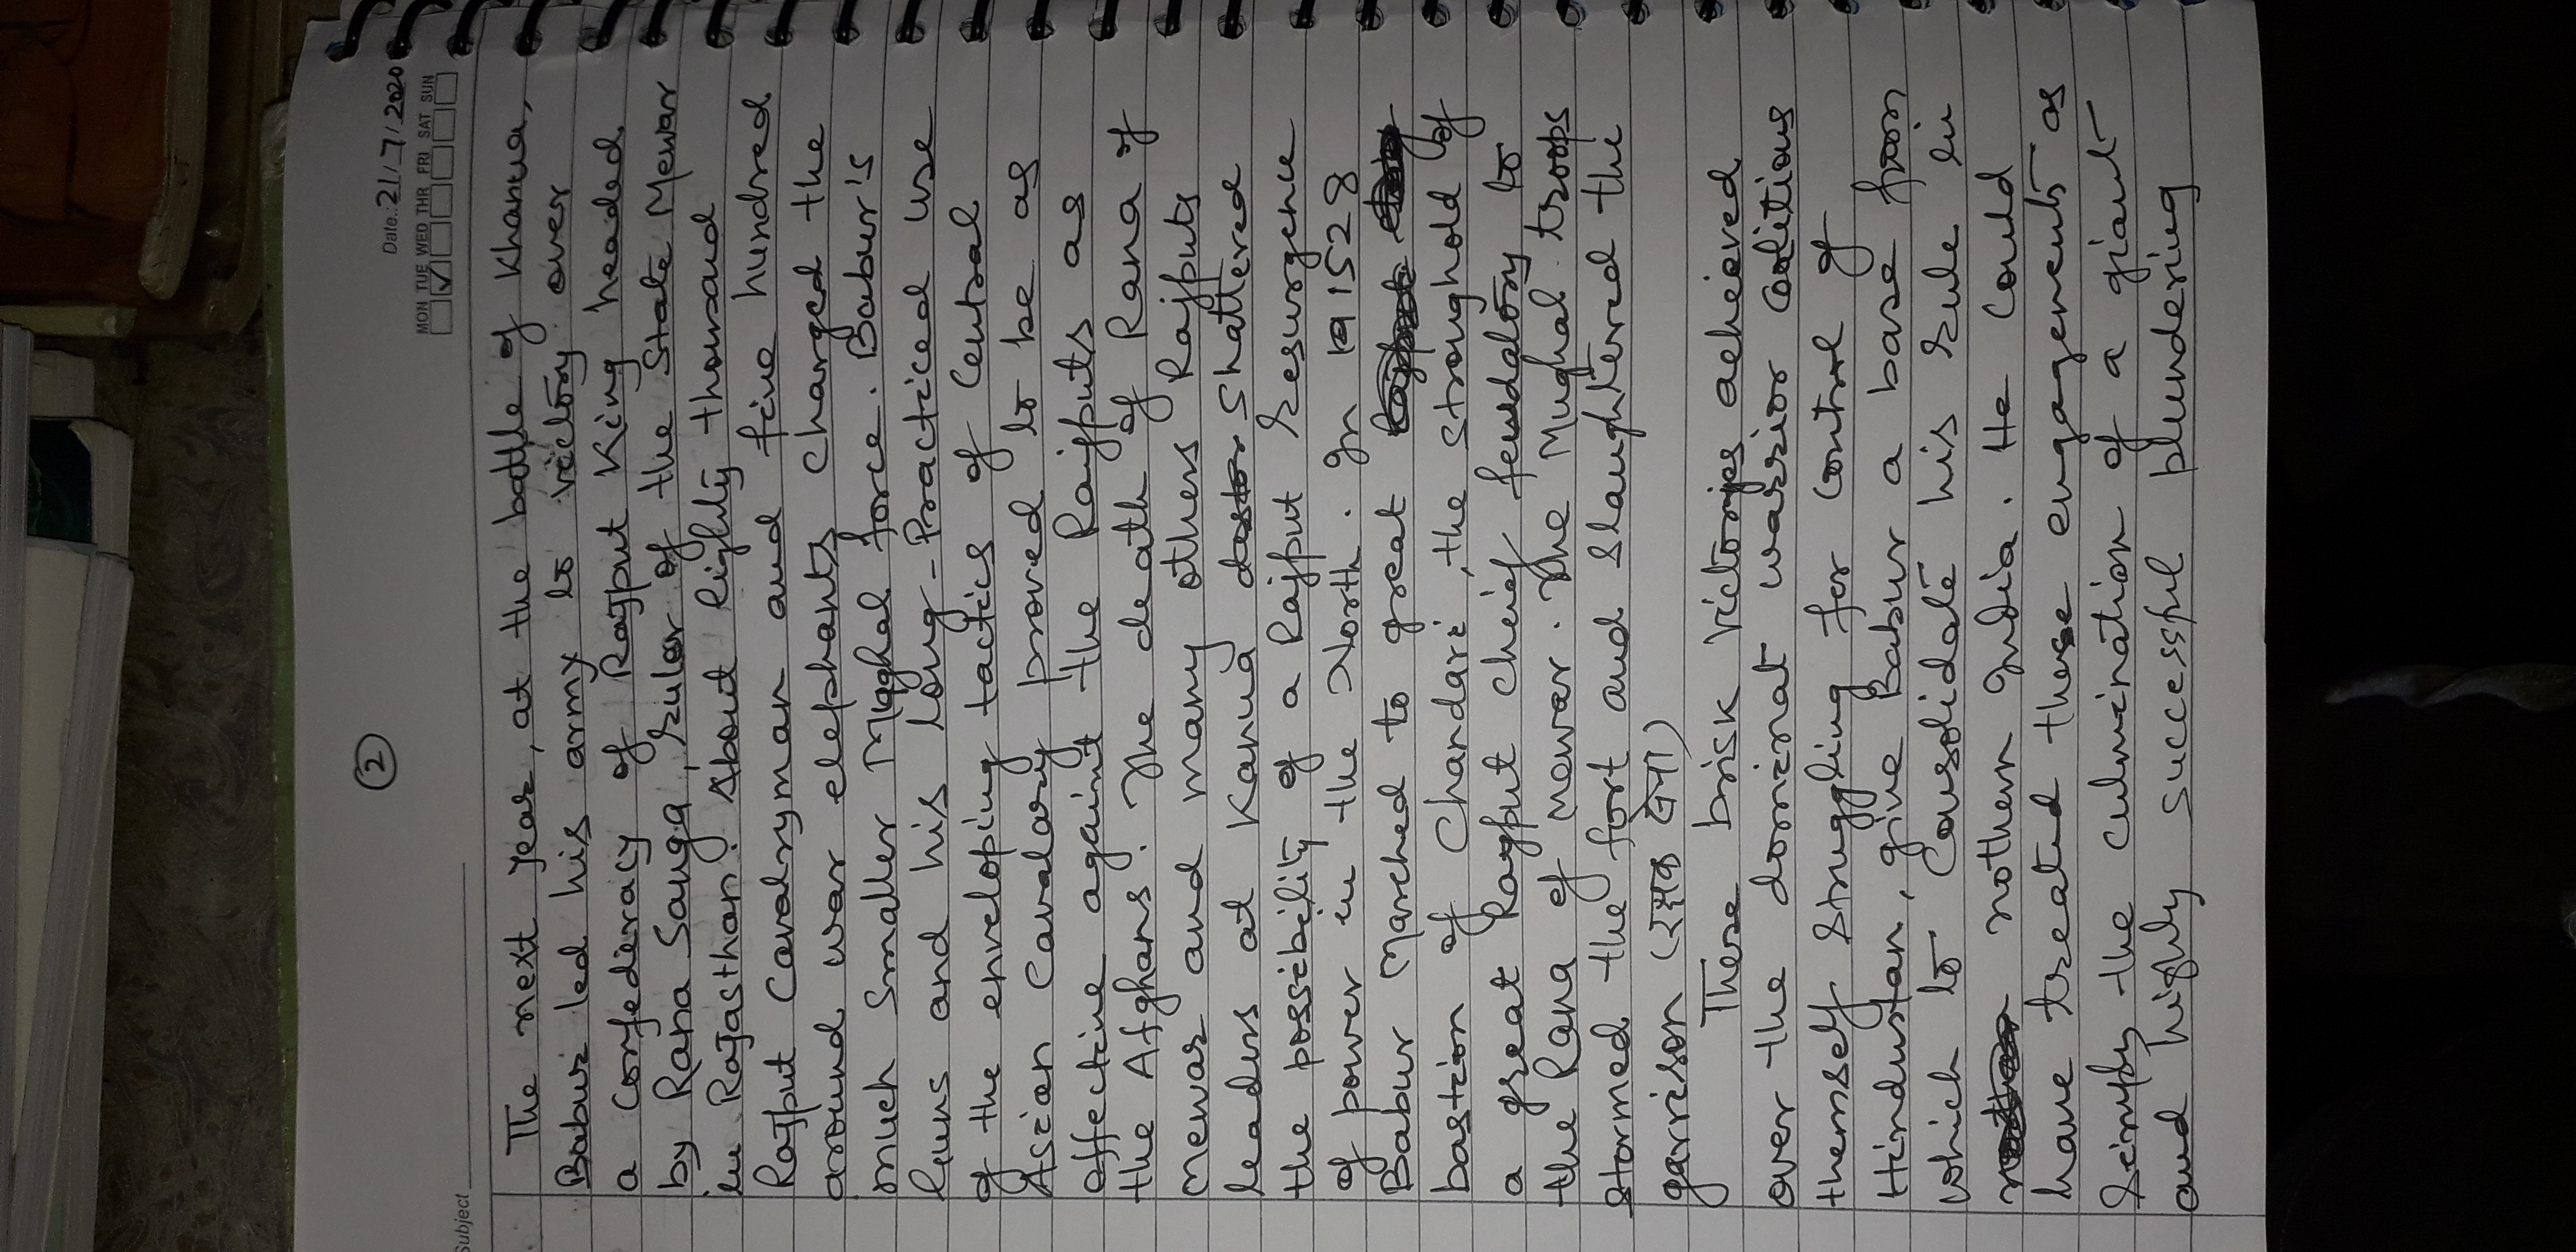 2
Date.: 21/7/2020
MON TUE WED THR FRI SAT SUN
Subject
The next year, at the battle of Khanua,
Babur led his army to victory over
a confedieracy of Rajput King headed
by Rana Sanga, ruler of the State Mewar
in Rajasthan. About Eighty thousand
Rajput Cavalryman and five hundred
around war elephants charged the
much smaller Mughal force. Babur's
Guns and his long-Practiced use
of the enveloping tactics of Central
Asian Cavalary proved to be as
effective against the Rajputs as
the Afghans. The death of Rana of
Mewar and many others Rajputs
leaders at Kanua shattered
the possibility of a Rajput resurgence
of power in the North. In 1528
Babur Marched to great
bastion of Chandari, the stronghold of
a great Rajput chief feudatory to
the Rana of Mewar. The Mughal troops
stormed the fort and slaughtered the
garrison (रसक सेना)
These brisk victories acheived
over the dominat warrior colitions
themself struggling for control of
Hindustan, give Babur a base from
which to Consolidate his rule in
nothern India. He Could
have treated these engangements as
simply the culmination of a giant
and highly successful plundering